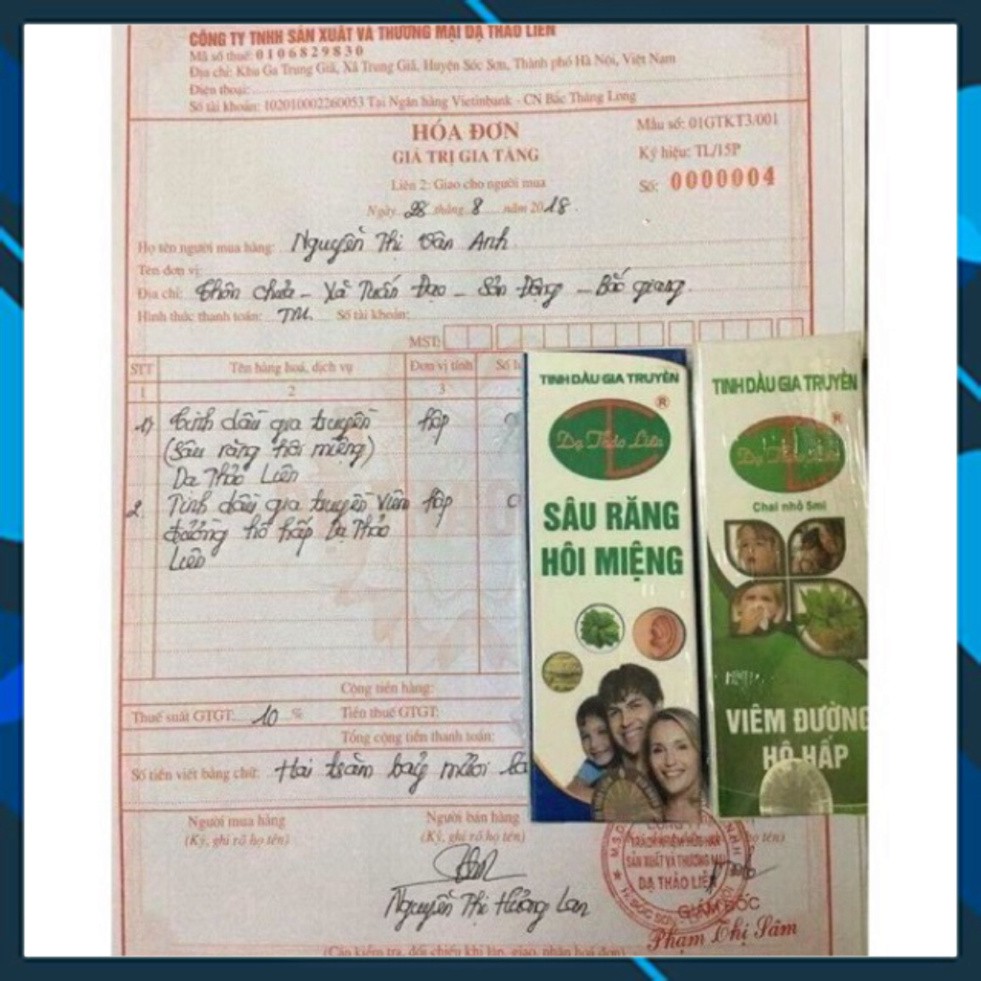 CÔNG TY TNHH SẢN XUẤT VÀ THƯƠNG MẠI DẠ THẢO LIÊN
Mã số thuế: 0106829830
Địa chỉ: Khu Ga Trung Giã, Xã Trung Giã, Huyện Sóc Sơn, Thành phố Hà Nội, Việt Nam
Điện thoại:
Số tài khoản: 102010002260053 Tại Ngân hàng Vietinbank - CN Bắc Thăng Long
HÓA ĐƠN
GIÁ TRỊ GIA TĂNG
Liên 2: Giao cho người mua
Ngày 28 tháng 8 năm 2018
Mẫu số: 01GTKT3/001
Ký hiệu: TL/15P
Số: 0000004
Họ tên người mua hàng: Nguyễn Thị Vân Anh
Tên đơn vị:
Địa chỉ: Thôn Chùa - Xã Tuấn Đạo - Sơn Động - Bắc Giang
Hình thức thanh toán: TM. Số tài khoản:
MST:
STT Tên hàng hoá, dịch vụ Đơn vị tính Số
1 2 3
1) Tinh dầu gia truyền hộp
(Sâu răng hôi miệng)
Dạ Thảo Liên
2. Tinh dầu gia truyền viêm hộp
đường hô hấp Dạ Thảo
Liên
Cộng tiền hàng:
Thuế suất GTGT: 10 % Tiền thuế GTGT:
Tổng cộng tiền thanh toán:
Số tiền viết bằng chữ: Hai trăm bảy mươi
Người mua hàng
(Ký, ghi rõ họ tên)
Người bán hàng
(Ký, ghi rõ họ tên)
Nguyễn Thị Hương Lan
họ tên)
CÔNG TY
TRÁCH NHIỆM HỮU HẠN
SẢN XUẤT VÀ THƯƠNG MẠI
DẠ THẢO LIÊN
GIÁM ĐỐC
Phạm Thị Sâm
(Cần kiểm tra, đối chiếu khi lập, giao, nhận hoá đơn)
TINH DẦU GIA TRUYỀN
®
Dạ Thảo Liên
SÂU RĂNG
HÔI MIỆNG
TINH DẦU GIA TRUYỀN
®
Dạ Thảo Liên
Chai nhỏ 5ml
VIÊM ĐƯỜNG
HÔ HẤP